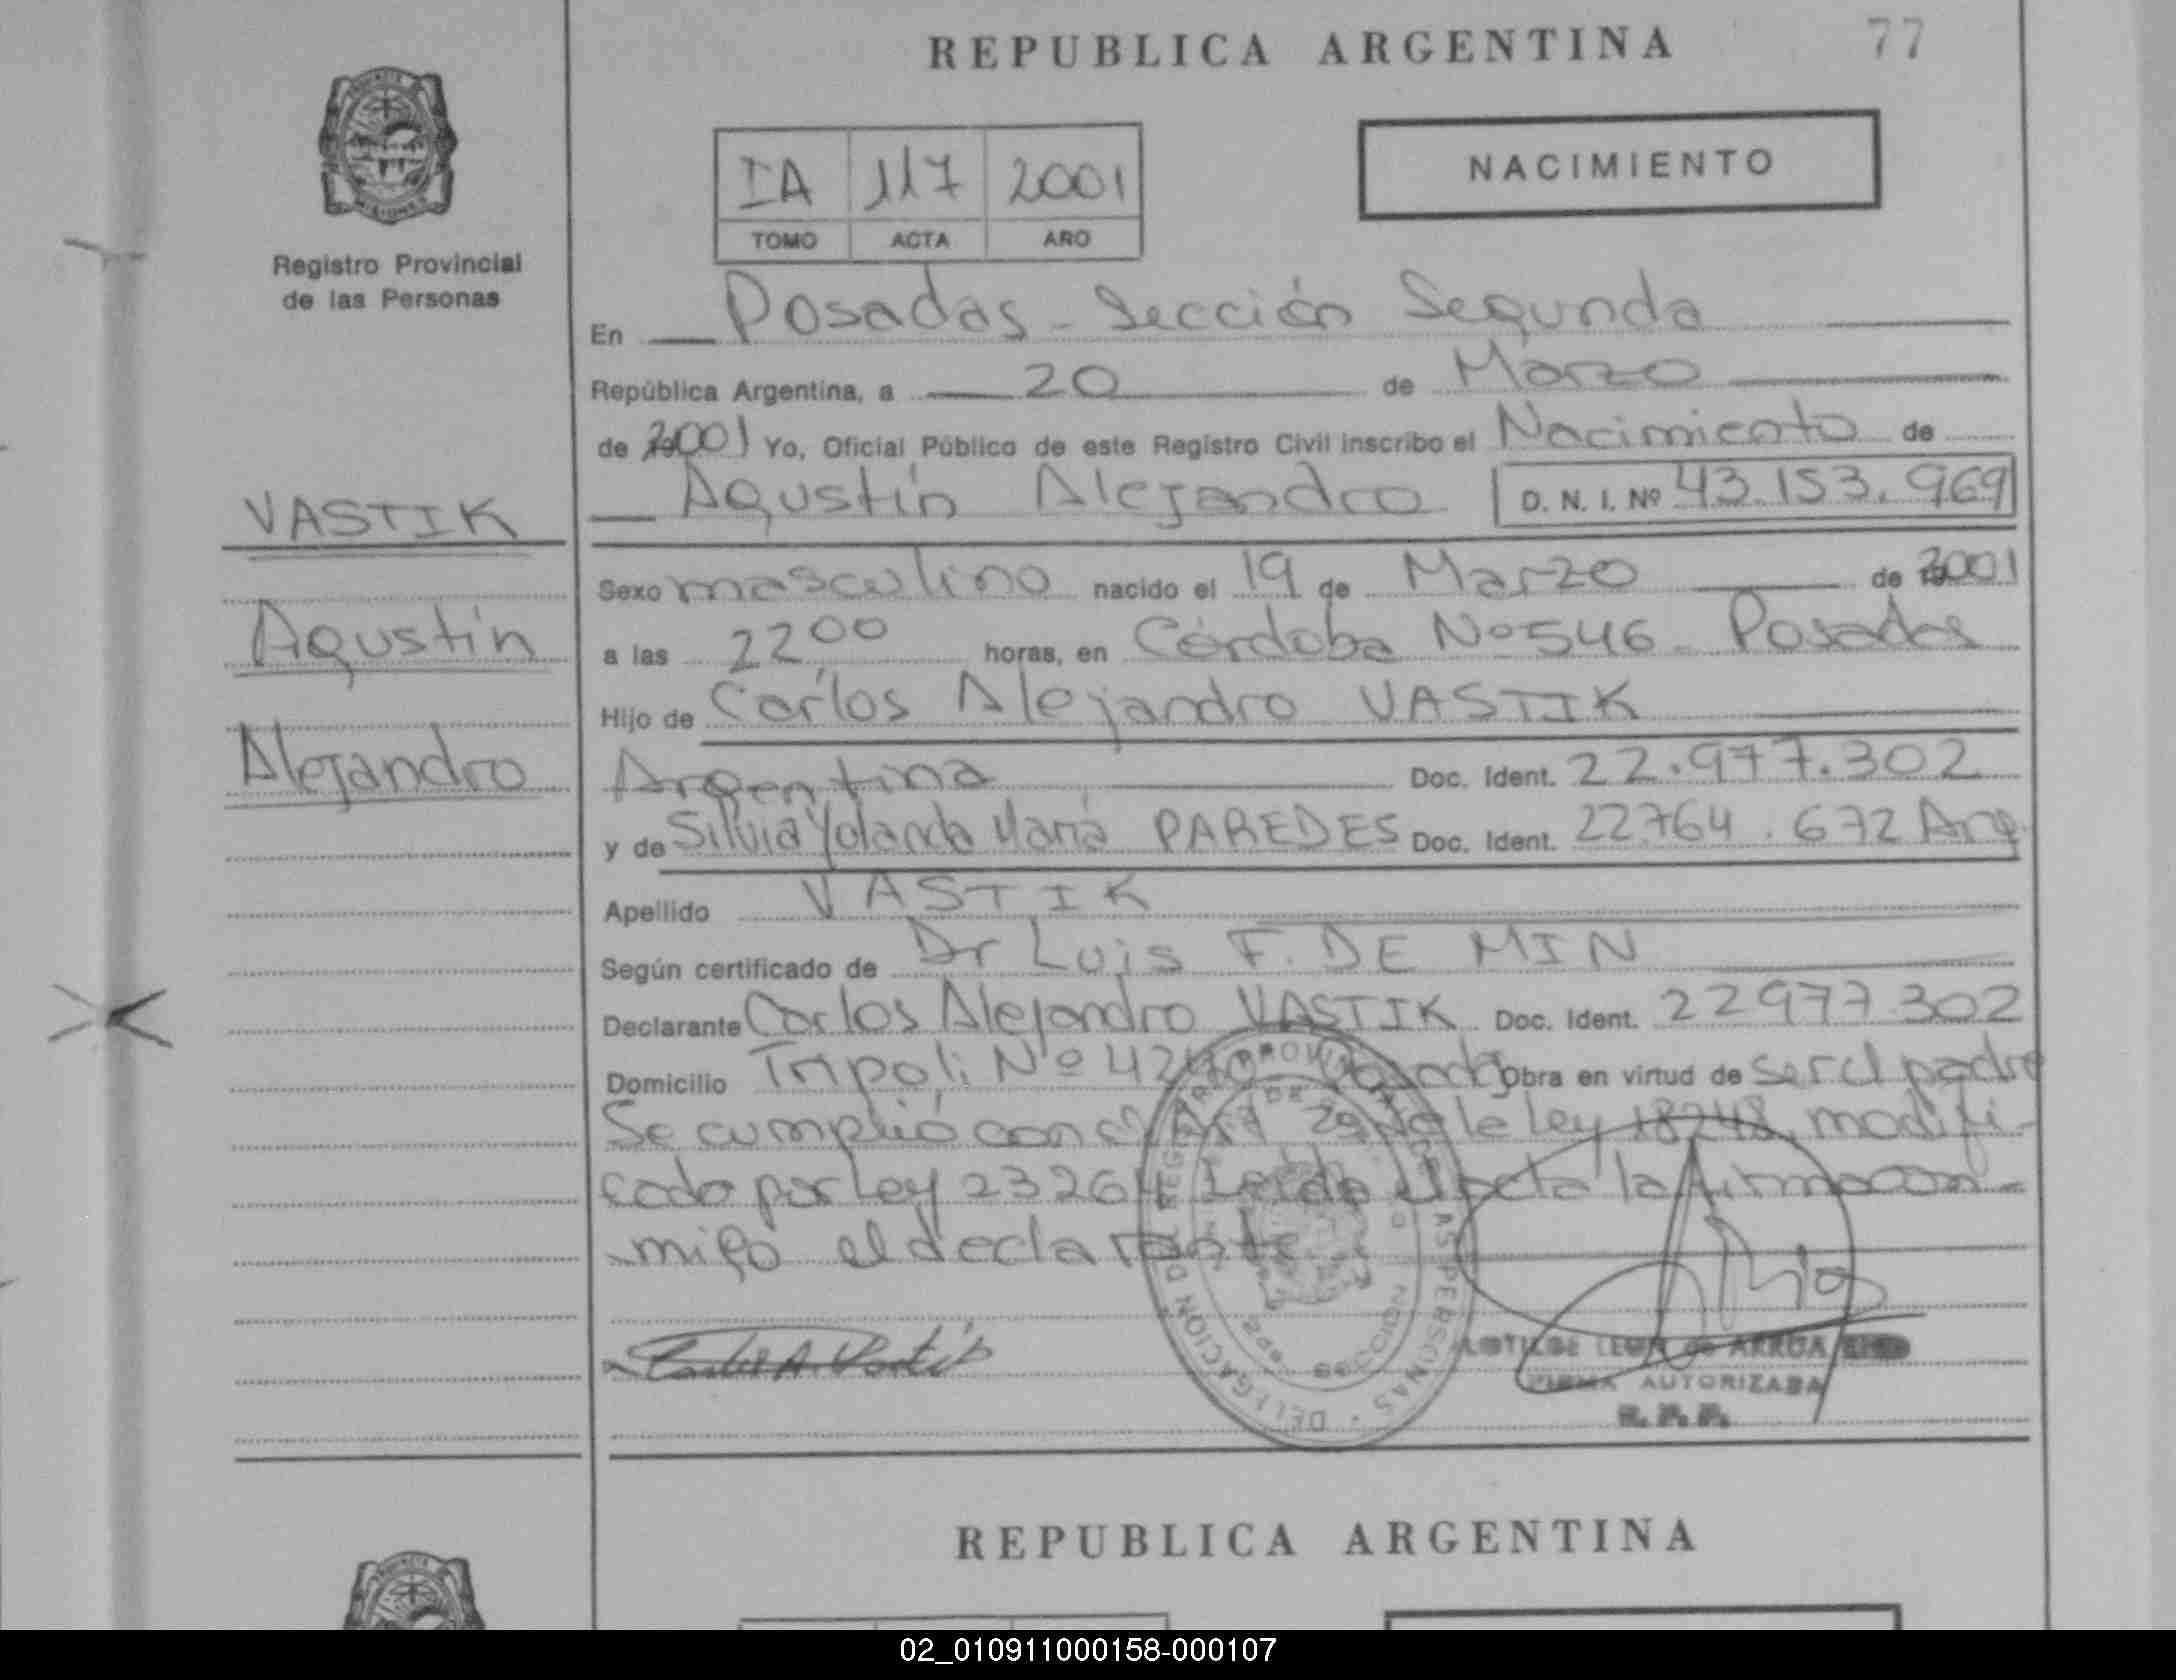 REPUBLICA ARGENTINA 77
IA 117 2001
TOMO ACTA AÑO
NACIMIENTO
Registro Provincial
de las Personas
En Posadas - Sección Segunda
República Argentina, a 20 de Marzo
de 2001 Yo, Oficial Público de este Registro Civil inscribo el Nacimiento de
Agustín Alejandro D. N. I. Nº 43.153.969
VASTIK
Agustín
Alejandro
Sexo masculino nacido el 19 de Marzo de 2001
a las 22 00 horas, en Córdoba Nº 546 - Posadas
Hijo de Carlos Alejandro VASTIK
Argentina Doc. Ident. 22.977.302
y de Silvia Yolanda María PAREDES Doc. Ident. 22764.672 Arg.
Apellido VASTIK
Según certificado de Dr Luis F. DE MIN
Declarante Carlos Alejandro VASTIK Doc. Ident. 22977.302
Domicilio Tripoli Nº Posadas Obra en virtud de ser el padre
Se cumplió con el Art 29 de le ley 18248, modifi-
cado por Ley 23264 Leída el acta la firma con-
migo el declarante
Carlos A. Vastik
DELEGACION DEL REGISTRO PROVINCIAL DE LAS PERSONAS
LEON de ARRUA
FIRMA AUTORIZADA
R. P. P.
REPUBLICA ARGENTINA
02_010911000158-000107